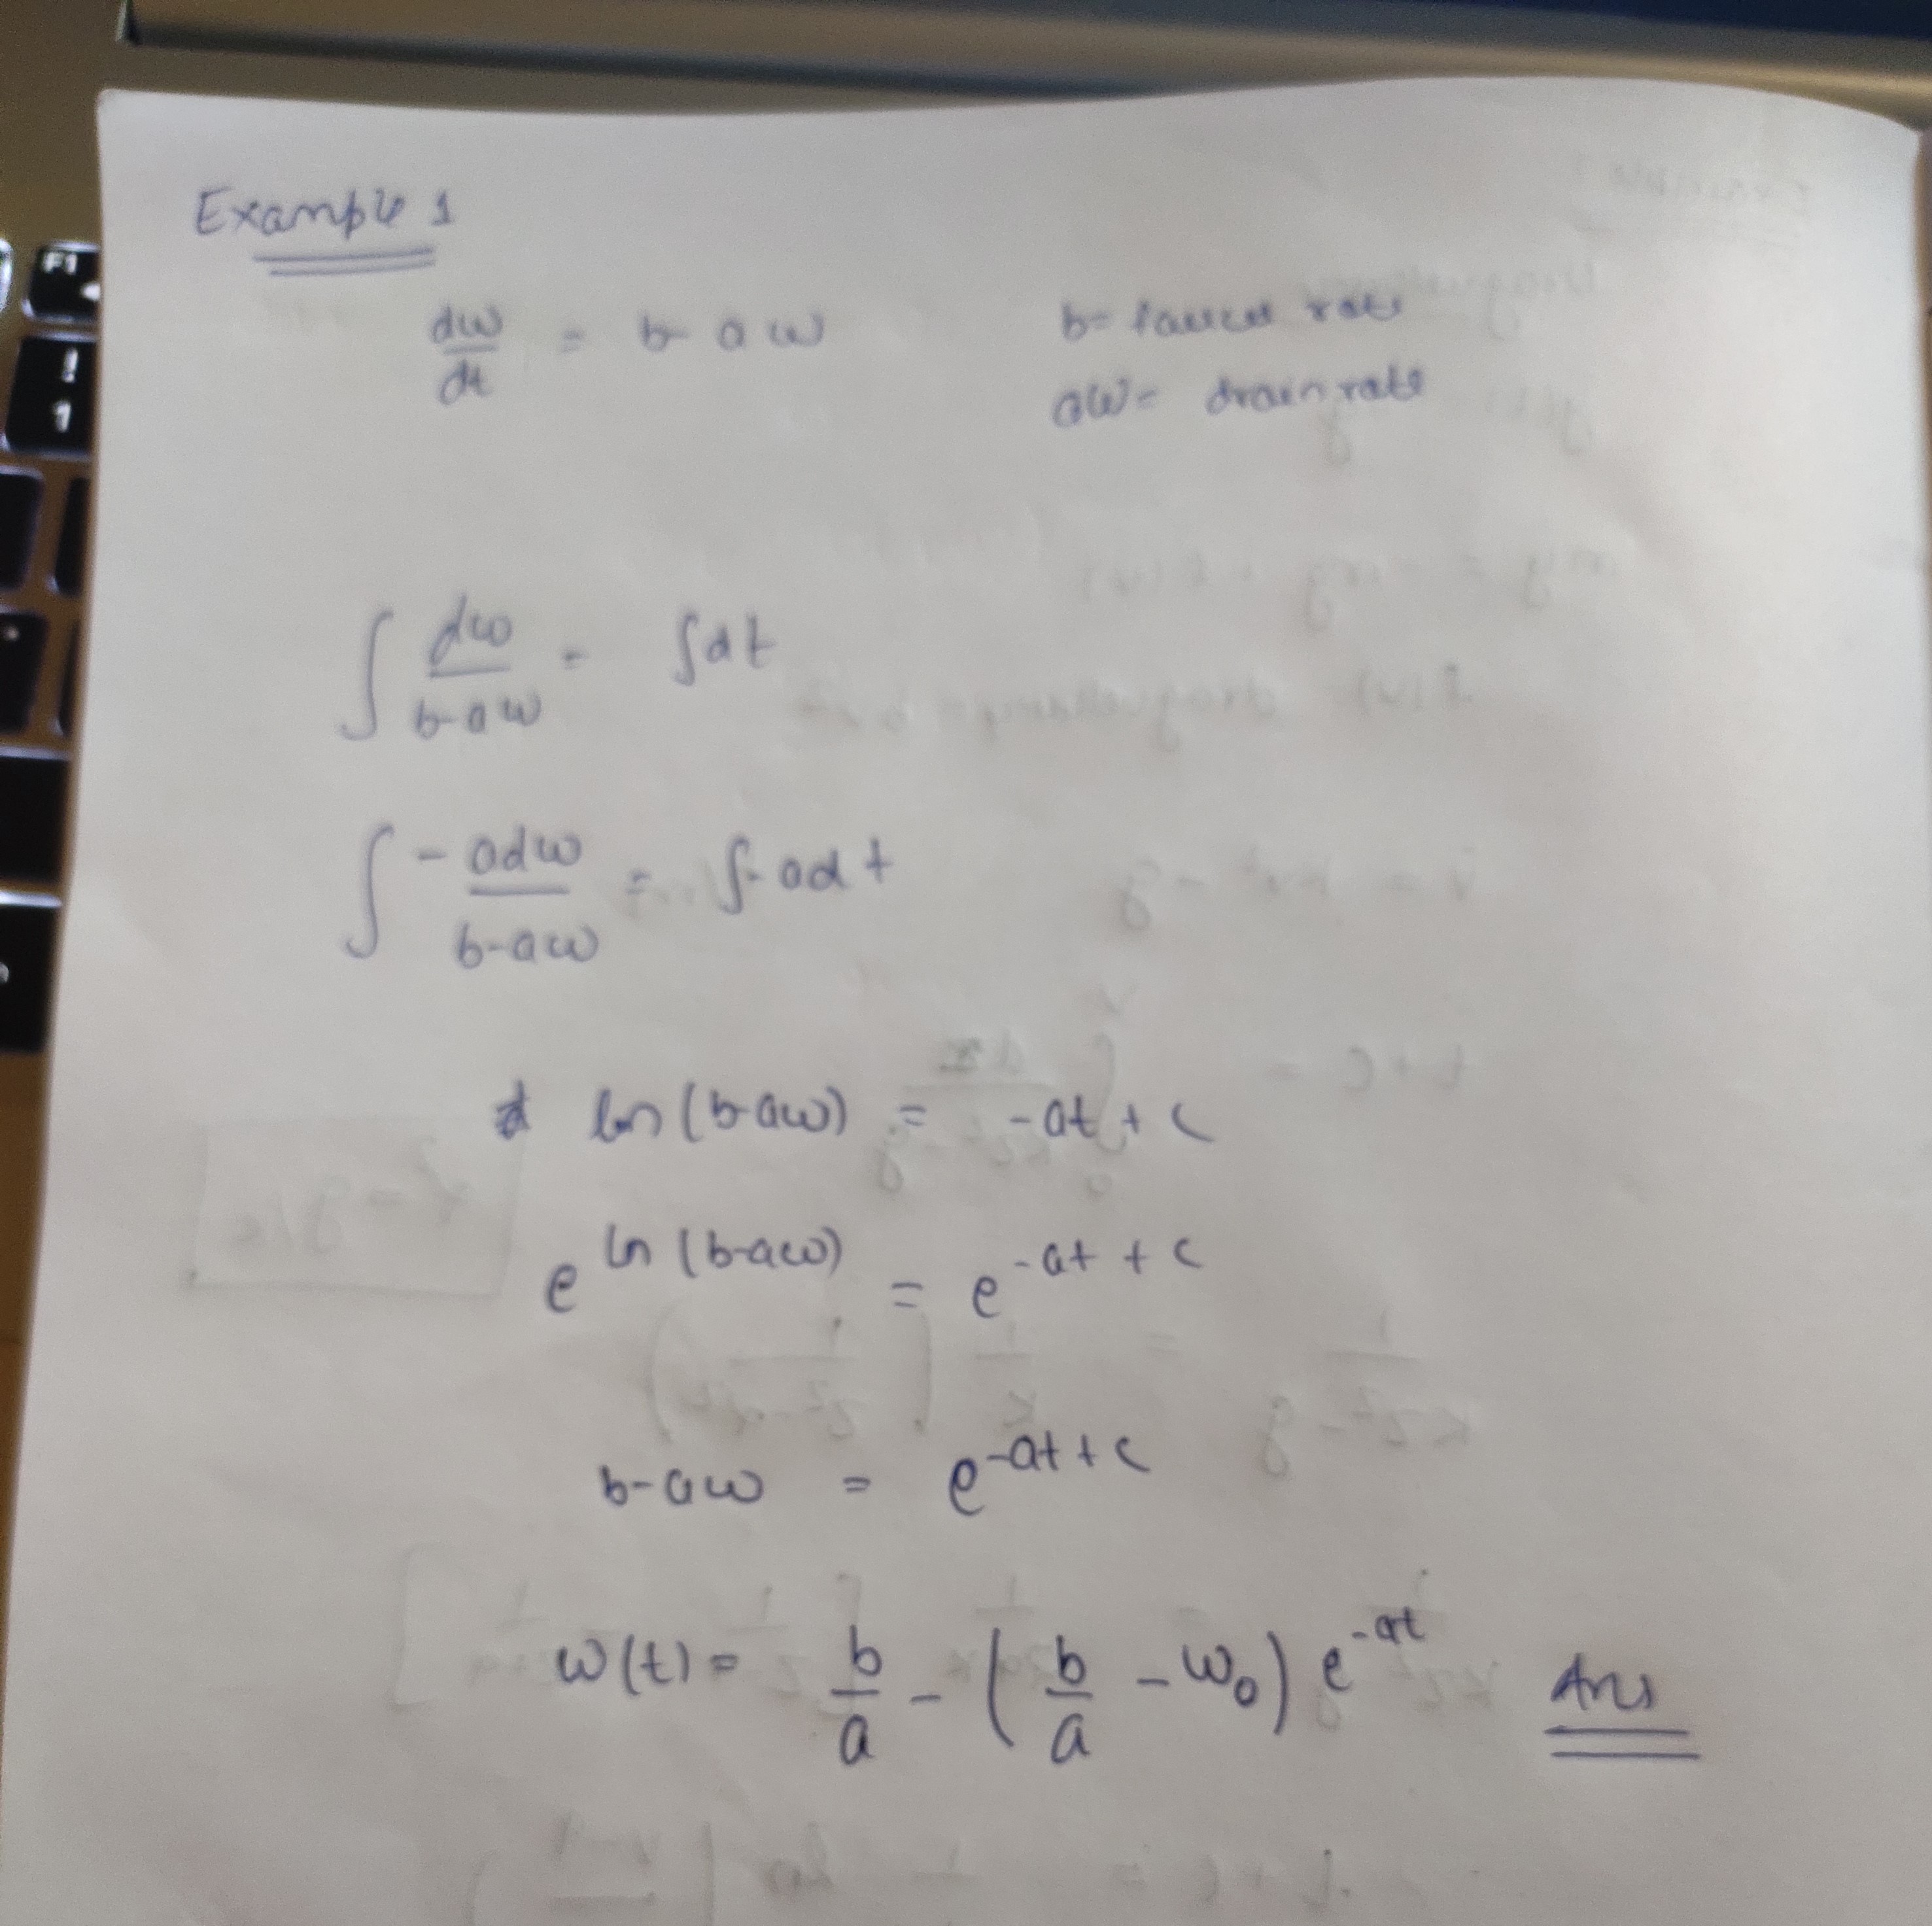 Example 1
dw/dt = b - a w    b = faucet rate
aw = drain rate
∫ dw/(b-aw) = ∫dt
∫ -adw/(b-aw) = ∫-adt
ln(b-aw) = -at + c
e^(ln(b-aw)) = e^(-at + c)
b-aw = e^(-at + c)
w(t) = b/a - (b/a - w₀) e^(-at)    Ans
F1
!
1